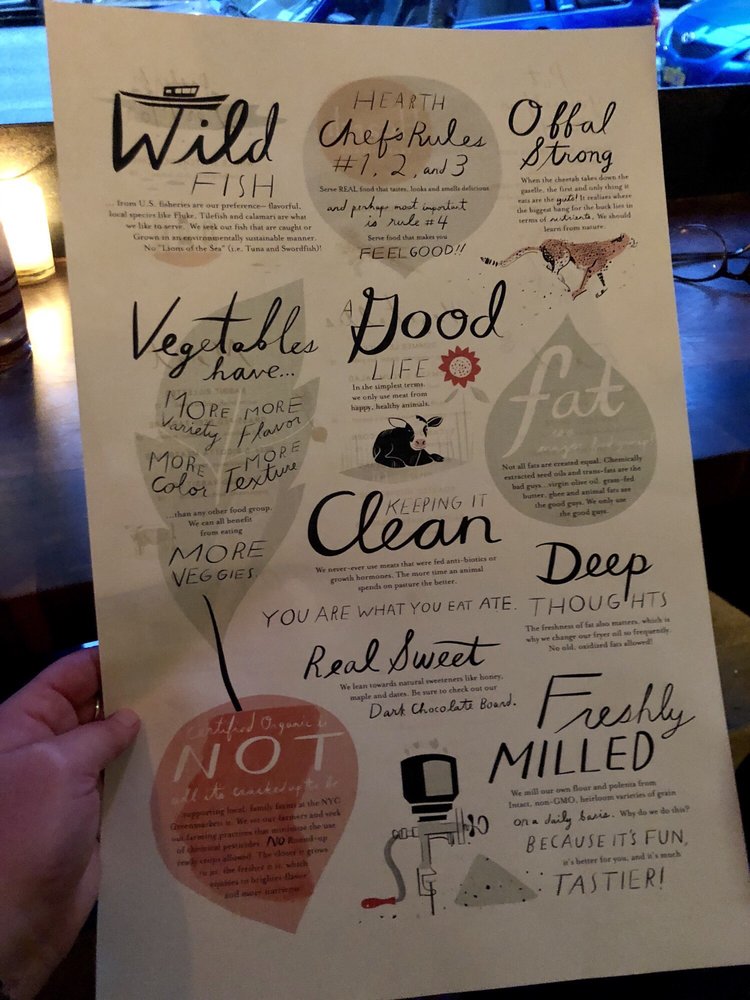 Wild
FISH
...from U.S. fisheries are our preference— flavorful,
local species like Fluke, Tilefish and calamari are what
we like to serve. We seek out fish that are caught or
Grown in an environmentally sustainable manner.
No "Lions of the Sea" (i.e. Tuna and Swordfish)!
HEARTH
Chef's Rules
#1, 2, and 3
Serve REAL food that tastes, looks and smells delicious
and perhaps most important
is rule #4
Serve food that makes you
FEEL GOOD!!
Offal
Strong
When the cheetah takes down the
gazelle, the first and only thing it
eats are the guts! It realizes where
the biggest bang for the buck lies in
terms of nutrients. We should
learn from nature.
Vegetables
have...
MORE Variety
MORE Flavor
MORE Color
MORE Texture
...than any other food group.
We can all benefit
from eating
MORE
VEGGIES.
A Good
LIFE
In the simplest terms,
we only use meat from
happy, healthy animals.
fat
Not all fats are created equal. Chemically
extracted seed oils and trans-fats are the
bad guys...virgin olive oil, grass-fed
butter, ghee and animal fats are
the good guys. We only use
the good guys.
KEEPING IT
Clean
We never-ever use meats that were fed anti-biotics or
growth hormones. The more time an animal
spends on pasture the better.
YOU ARE WHAT YOU EAT ATE.
Deep
THOUGHTS
The freshness of fat also matters, which is
why we change our fryer oil so frequently.
No old, oxidized fats allowed!
Real Sweet
We lean towards natural sweeteners like honey,
maple and dates. Be sure to check out our
Dark Chocolate Board.
Certified Organic is
NOT
all it's cracked up to be
supporting local, family farms at the NYC
Greenmarkets is. We vet our farmers and seek
out farming practices that minimize the use
of chemical pesticides. NO Round-up
ready crops allowed. The closer it grows
to us, the fresher it is, which
equates to brighter flavor
and more nutrients.
Freshly
MILLED
We mill our own flour and polenta from
Intact, non-GMO, heirloom varieties of grain
on a daily basis. Why do we do this?
BECAUSE IT'S FUN,
it's better for you, and it's much
TASTIER!